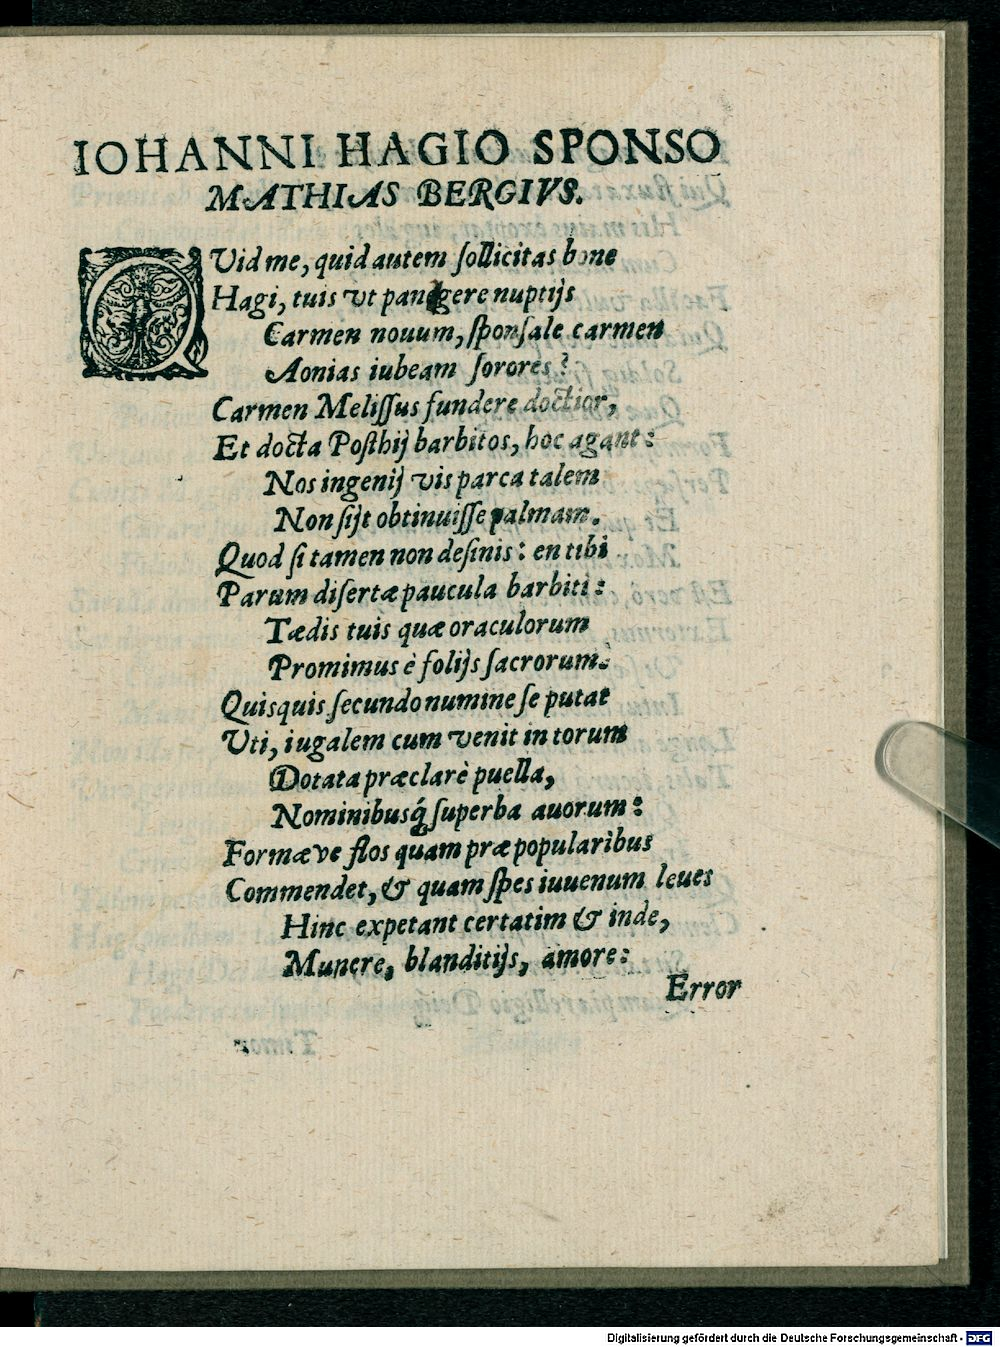 IOHANNI HAGIO SPONSO
MATHIAS BERGIVS.
QVid me, quid autem ſollicitas bone
Hagi, tuis vt pangere nuptijs
Carmen nouum, ſponſale carmen
Aonias iubeam ſorores?
Carmen Meliſſus fundere doctior,
Et docta Poſthij barbitos, hoc agant:
Nos ingenij vis parca talem
Non ſijt obtinuiſſe palmam.
Quod ſi tamen non deſinis: en tibi
Parum diſertæ paucula barbiti:
Tædis tuis quæ oraculorum
Promimus è folijs ſacrorum.
Quisquis ſecundo numine ſe putat
Vti, iugalem cum venit in torum
Dotata præclarè puella,
Nominibusq́ ſuperba auorum:
Formæ ve flos quam præ popularibus
Commendet, & quam ſpes iuuenum leues
Hinc expetant certatim & inde,
Munere, blanditijs, amore:
Error
Digitalisierung gefördert durch die Deutsche Forschungsgemeinschaft - DFG